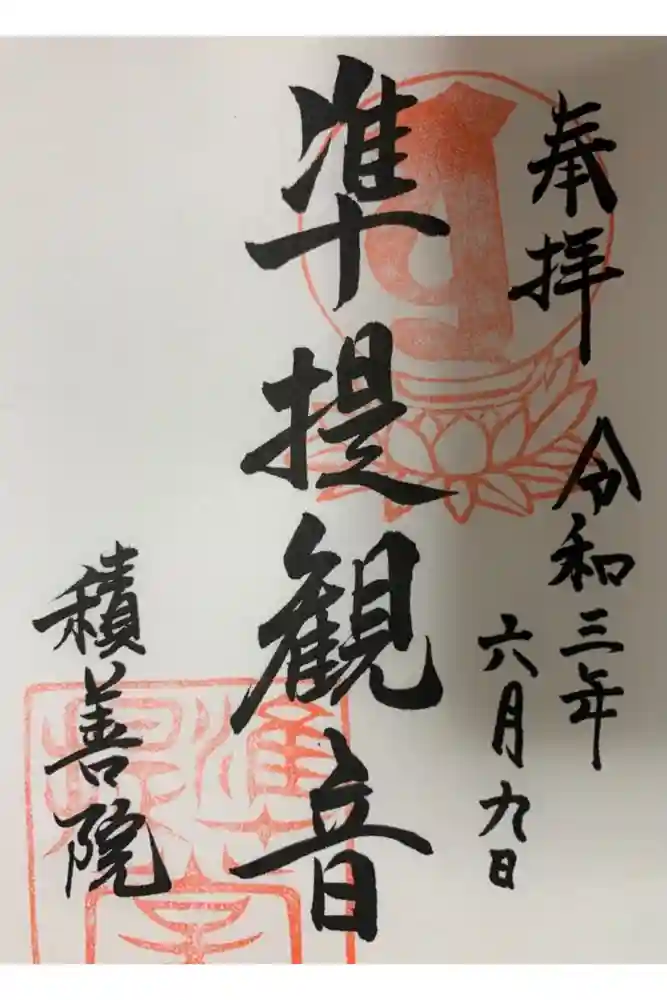 奉拝
令和三年
六月九日
准提観音
積善院